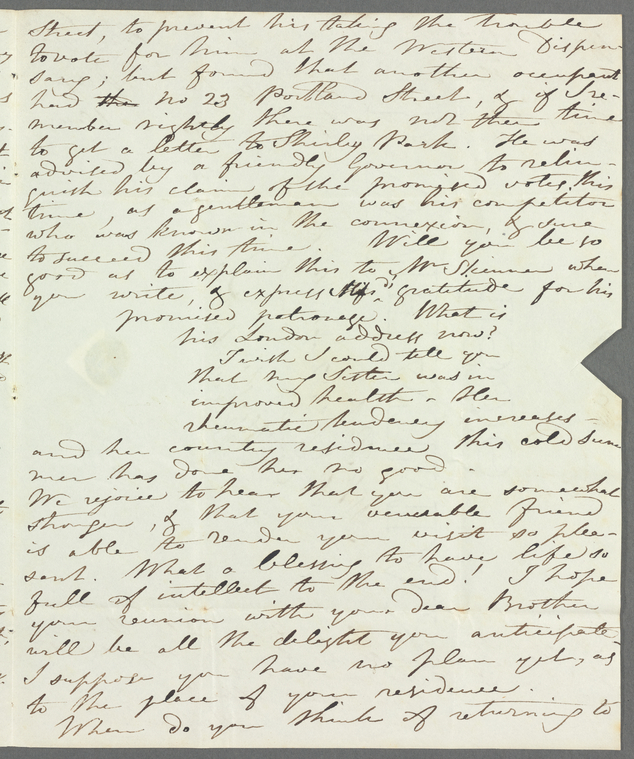 Street, to prevent his taking the trouble
to vote for him at the Western Dispen-
sary; but found that another occupant
had the no 23 Portland Street, & if I re-
member rightly there was not then time
to get a letter to Shirley Park. He was
advised by a friendly Governor to relin-
quish his claim of the promised votes this
time, as a gentleman was his competitor
who was known in the connexion, & sure
to succeed this time. Will you be so
good as to explain this to Mr Skinner when
you write, & express gratitude for his
promised patronage. What is
his London address now?
I wish I could tell you
that my Sister was in
improved health - Her
rheumatic tendency increases -
and her country residence this cold sum
mer has done her no good.
We rejoice to hear that you are somewhat
stronger, & that your venerable friend
is able to render your visit so plea-
sant. What a blessing to have life so
full of intellect to the end! I hope
your reunion with your dear Brother
will be all the delight you anticipate.
I suppose you have no plan yet, as
to the place of your residence.
When do you think of returning to